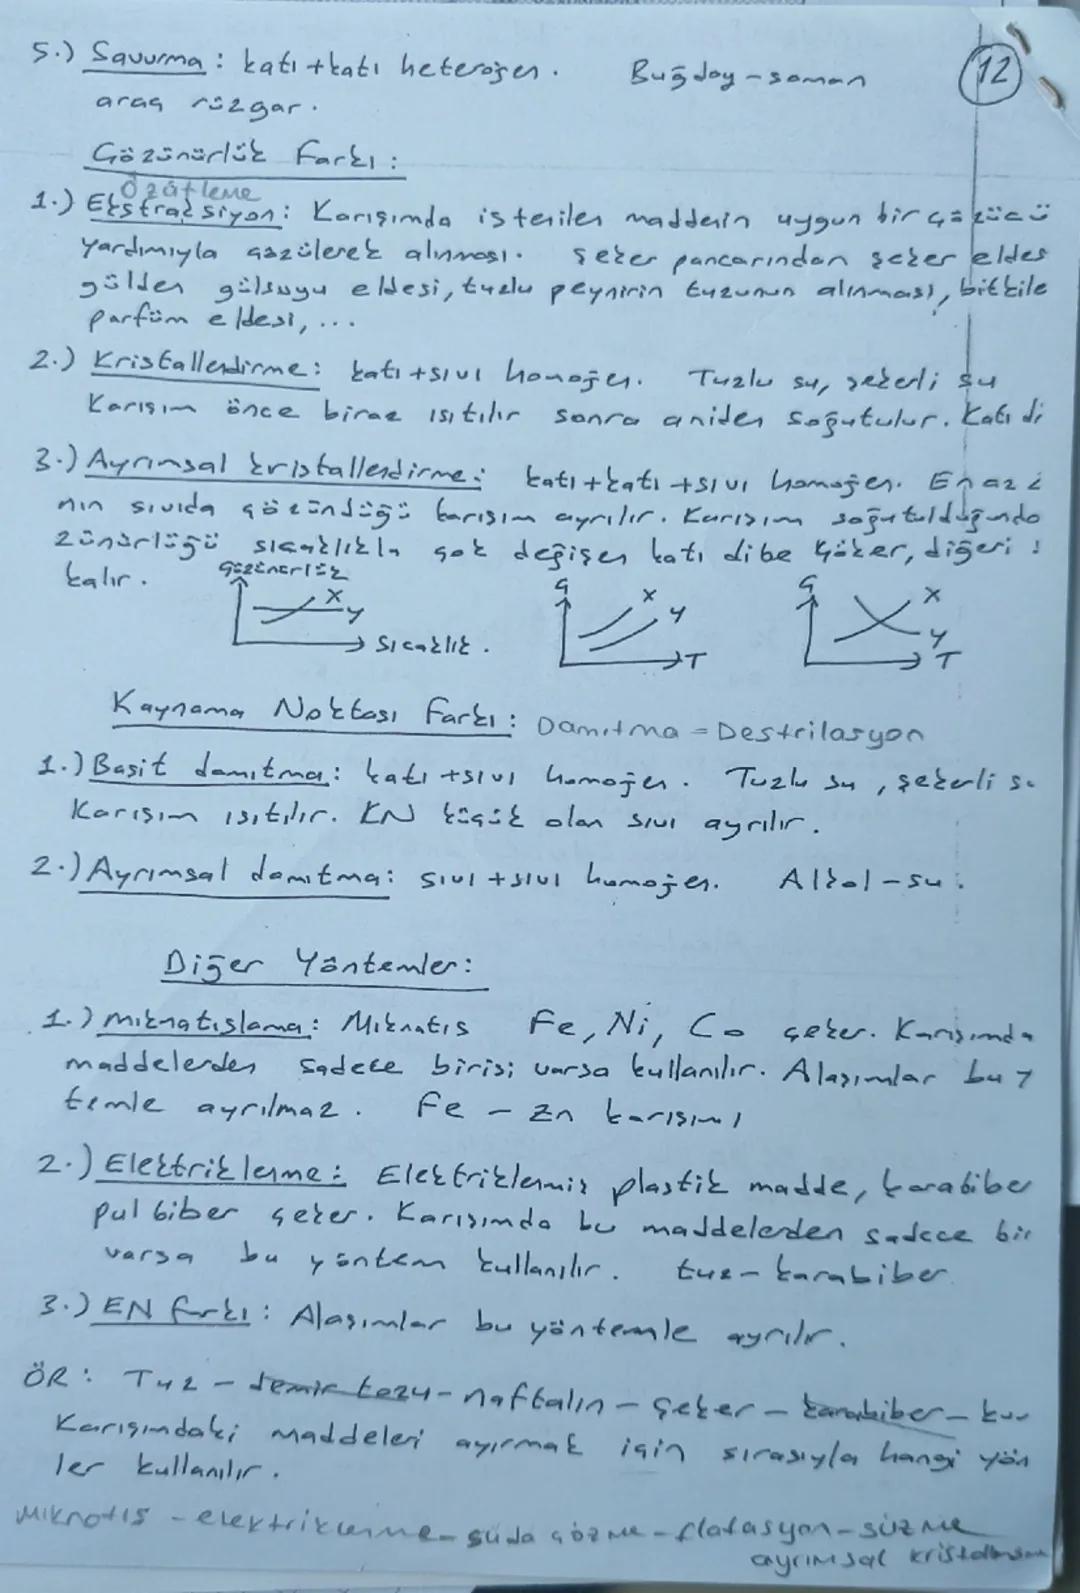 5.) Savurma : katı+katı heterojen. Buğday-saman
12
araç rüzgar.
Çözünürlük Farkı :
Özütleme
1.) Ekstraksiyon: Karışımda istenilen maddenin uygun bir çözücü
yardımıyla çözülerek alınması. Şeker pancarından şeker eldes
gülden gülsuyu eldesi, tuzlu peynirin tuzunun alınması, bitkile
parfüm eldesi, ...
2.) Kristallendirme: katı+sıvı homojen. Tuzlu su, şekerli su
Karışım önce biraz ısıtılır sonra aniden soğutulur. Katı di
3.) Ayrımsal kristallendirme: katı+katı+sıvı homojen. En az i
nin sıvıda çözündüğü karışım ayrılır. Karışım soğutulduğunda
zünürlüğü sıcaklıkla çok değişen katı dibe çöker, diğeri
kalır.
Çözünürlük
X
Y
Sıcaklık.
Ç
X
Y
T
Ç
X
Y
T
Kaynama Noktası Farkı : Damıtma = Destrilasyon
1.) Basit damıtma: katı+sıvı homojen. Tuzlu su, şekerli s
Karışım ısıtılır. KN küçük olan sıvı ayrılır.
2.) Ayrımsal damıtma: sıvı+sıvı homojen. Alkol-su.
Diğer Yöntemler:
1.) Mıknatıslama: Mıknatıs Fe, Ni, Co çeker. Karışımda
maddelerden sadece birisi varsa kullanılır. Alaşımlar bu y
temle ayrılmaz. Fe - Zn karışımı
2.) Elektriklenme: Elektriklenmiş plastik madde, karabiber
pul biber çeker. Karışımda bu maddelerden sadece bir
varsa bu yöntem kullanılır. tuz-karabiber
3.) EN farkı : Alaşımlar bu yöntemle ayrılır.
ÖR : Tuz - demir tozu - naftalin - şeker - karabiber - ku
Karışımdaki maddeleri ayırmak için sırasıyla hangi yön
ler kullanılır.
Mıknatıs - elektriklenme - suda çözme - flatasyon - süzme
ayrımsal kristallenme